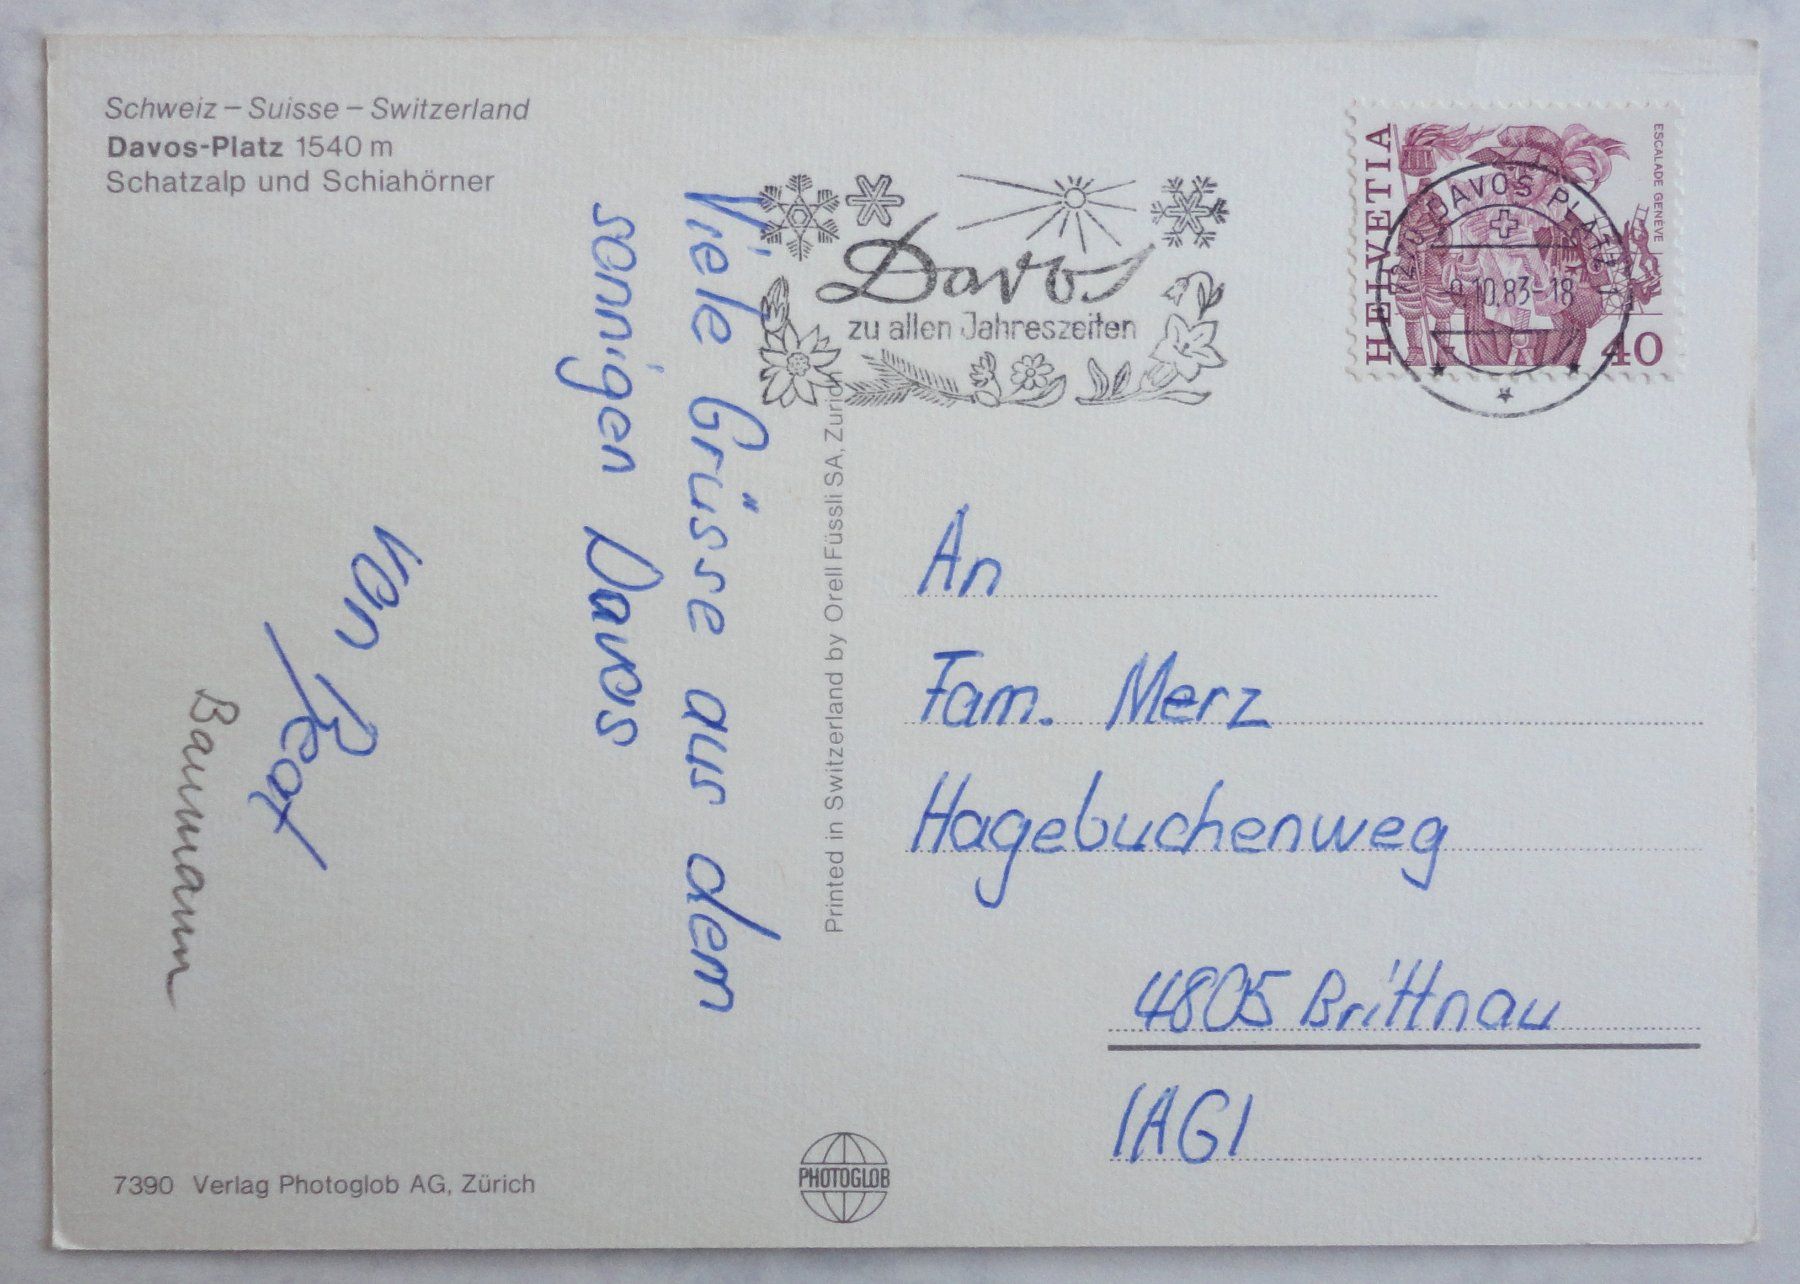 Schweiz – Suisse – Switzerland
Davos-Platz 1540 m
Schatzalp und Schiahörner
Viele Grüsse aus dem
sonnigen Davos
von Beat
Baumann
Printed in Switzerland by Orell Füssli SA, Zürich
Davos
zu allen Jahreszeiten
HELVETIA
ESCALADE GENÈVE
40
DAVOS PLATZ 1
10.83-18
An
Fam. Merz
Hagebuchenweg
4805 Brittnau
/AG/
7390 Verlag Photoglob AG, Zürich
PHOTOGLOB